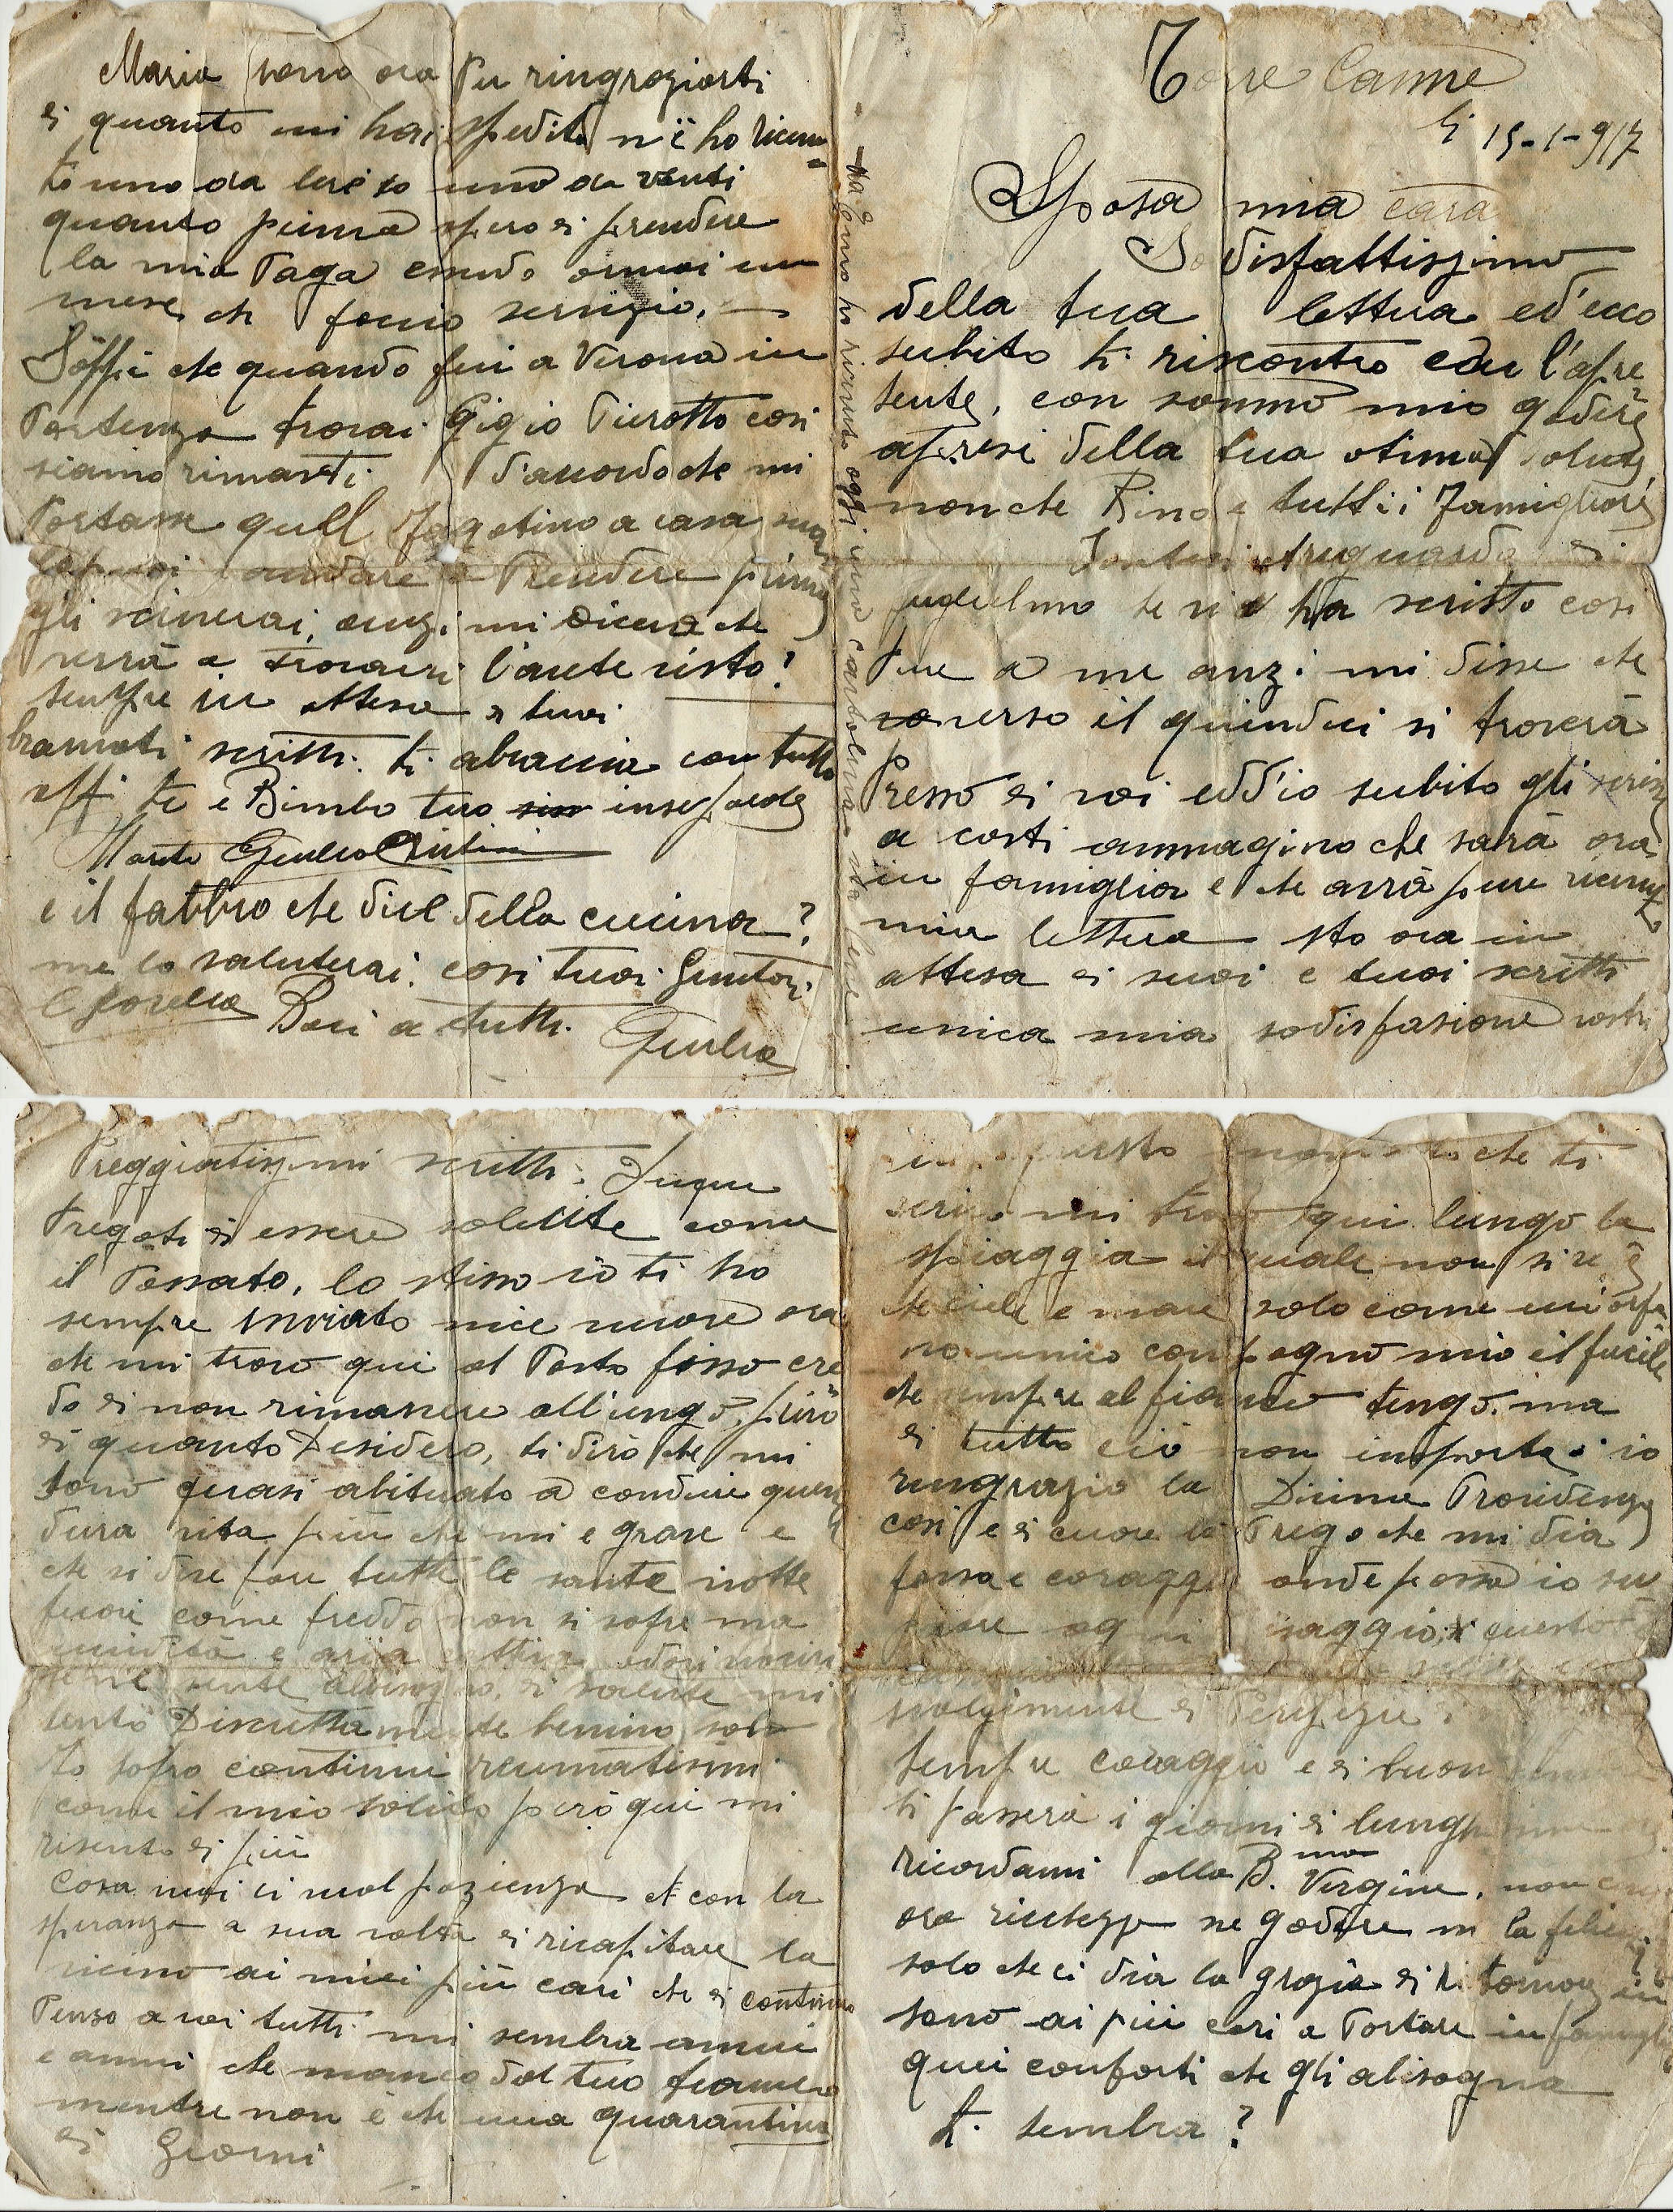 Torre Canne
li 15-1-917
Sposa mia cara
Sodisfattissimo
della tua lettera ed'ecco
subito ti riscontro con l'apre
sente, con sommo mio godere
apresi della tua otima salute
nonche Rino e tutti i Famigliari
Intesi riguardo di
Guglielmo te ni ha scritto così
Pure a me anzi mi disse che
verso il quindici si troverà
Presso di voi edd'io subito gli scrissi
a costi ammagino che sarà ora
in famiglia e che avrà pure ricevuto
mia lettera sto ora in
attesa di suoi e tuoi scritti
unica mia sodisfasione vostri
Preggiatissimi scritti: Dunque
Pregoti di essere solecite come
il Passato, lo stisso io ti ho
sempre inviato mie nuove ora
che mi trovo qui al Posto fisso cre
do di non rimanere all'ungo, però
di quanto Desidero, ti dirò che mi
sono quasi abituato a condure questa
dura vita più che mi e grave e
che si deve fare tutte le sante notte
fuori come freddo non si sofre ma
umidità e aria cattiva odori nocivi
di salute mi
sento Discrettamente benino solo
sofro continui reumatismi
come il mio solito però qui mi
risento di più
Cosa vuoi ci vuol pazienza et con la
speranza a sua volta di ricapitare la
vicino ai miei più cari che di continuo
Penso a voi tutti mi sembra annui
e anni che manco dal tuo fianco
mentre non è che una quarantina
di Giorni
in questo momento che ti
scrivo mi trovo qui lungo la
spiaggia il quale non si vede
che ciele e mare solo come un orfa
no unico compagno mio il fucile
che sempre al fianco tengo. ma
di tutto ciò non importa io
ringrazio la Divina Providenza
così e di cuore la Prego che mi dia
forsa e coraggio onde possa io su
perare ogni questo
svolgimente di
sempre coraggio e di buon
ti passerà i giorni di
ricordami alla B.ma V. Vergine, non
ora richezze ne godere la
solo che ci dia la grazia di ritornare
sano ai più cari a Portare in famiglia
quei conforti che gli abisogna
ti sembra?
Maria sono ora Per ringraziarti
di quanto mi hai spedito n'è ho ricevu
to uno da unò da venti
quanto prima spero di prendere
la mia Paga essendo ormai un
mese che faccio servizio.
Sappi che quando fui a Verona in
Partenza trovai Gigio Pierotto così
siamo rimasti d'accordo che mi
Portasse quell Fagotino a casa sua
la puoi andare a Prendere prima
gli scriverai, anzi mi diceva che
verrà a trovarvi l'avete visto?
sempre in attesa di tuoi
bramati scritti. ti abraccia con tutto
aff. te e Bimbo tuo inseparabile
Marito Giulio Cristini
e il fabbro che dice della cucina?
me lo saluterai. così tuoi Genitori
e sorella Baci a tutti. Giulio
ho ricevuto oggi una cartolina